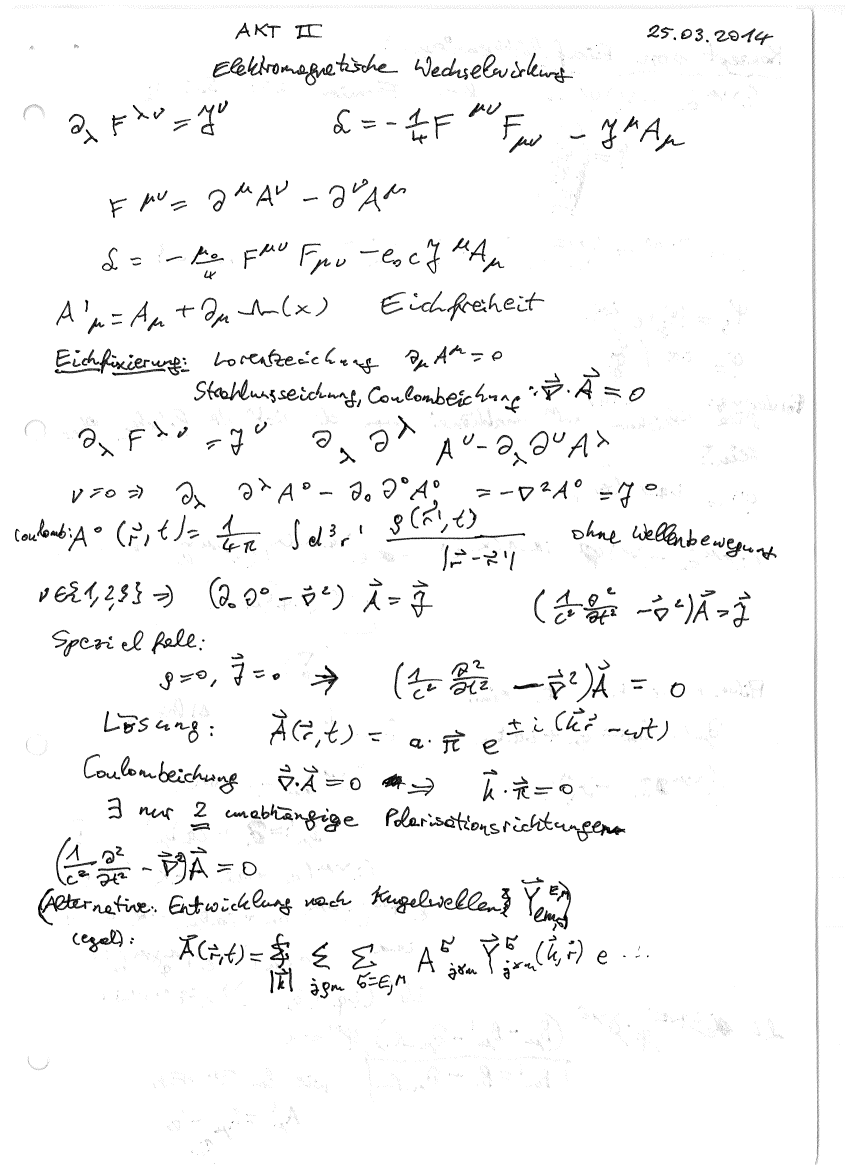 AKT II 25.03.2014
Elektromagnetische Wechselwirkung
∂_λ F^{λν} = J^ν   ℒ = -1/4 F^{μν} F_{μν} - J^μ A_μ
F^{μν} = ∂^μ A^ν - ∂^ν A^μ
ℒ = - μ₀/4 F^{μν} F_{μν} - e₀ c J^μ A_μ
A'_μ = A_μ + ∂_μ Λ(x)   Eichfreiheit
Eichfixierung: Lorentzeichung ∂_μ A^μ = 0
Strahlungseichung, Coulombeichung: ∇⃗ · A⃗ = 0
∂_λ F^{λν} = J^ν   ∂_λ ∂^λ A^ν - ∂_λ ∂^ν A^λ
ν = 0 ⇒ ∂_λ ∂^λ A⁰ - ∂₀ ∂⁰ A⁰ = -∇² A⁰ = J⁰
Coulomb: A⁰ (r⃗, t) = 1/4π ∫ d³r' ρ(r⃗', t) / |r⃗ - r⃗'|   ohne Wellenbewegung
ν ∈ {1,2,3} ⇒ (∂₀ ∂⁰ - ∇⃗²) A⃗ = J⃗   (1/c² ∂²/∂t² - ∇⃗²) A⃗ = J⃗
Spezielfall:
ρ = 0, J⃗ = 0 ⇒ (1/c² ∂²/∂t² - ∇⃗²) A⃗ = 0
Lösung: A⃗(r⃗, t) = a · π⃗ e^{± i (k⃗ r⃗ - ωt)}
Coulombeichung ∇⃗ · A⃗ = 0 ⇒ k⃗ · π⃗ = 0
∃ nur 2 unabhängige Polarisationsrichtungen
(1/c² ∂²/∂t² - ∇⃗²) A⃗ = 0
(Alternative: Entwicklung nach Kugelwellen
(egal): A⃗(r⃗, t) = Σ_{|k⃗|} Σ_{jℓm} Σ_{σ=E,M} A^σ_{jℓm} Y⃗^σ_{jℓm} (k⃗, r⃗) e ...